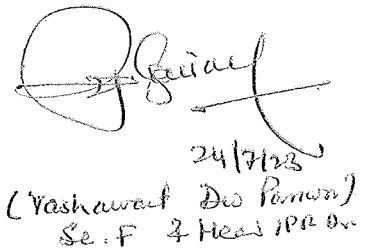 24/7/23
(Yashawant Dev Panwar)
Sc. F & Head IPR Dn